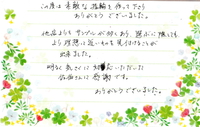 この度は素敵な指輪を作って下さり
ありがとうございました。
他店よりもサンプルが多くあり、選ぶに際しても
より理想に近いものを見付けることが
出来ました。
明るく気さくに対応いただいた
佐々木さんに感謝です。
ありがとうございました。